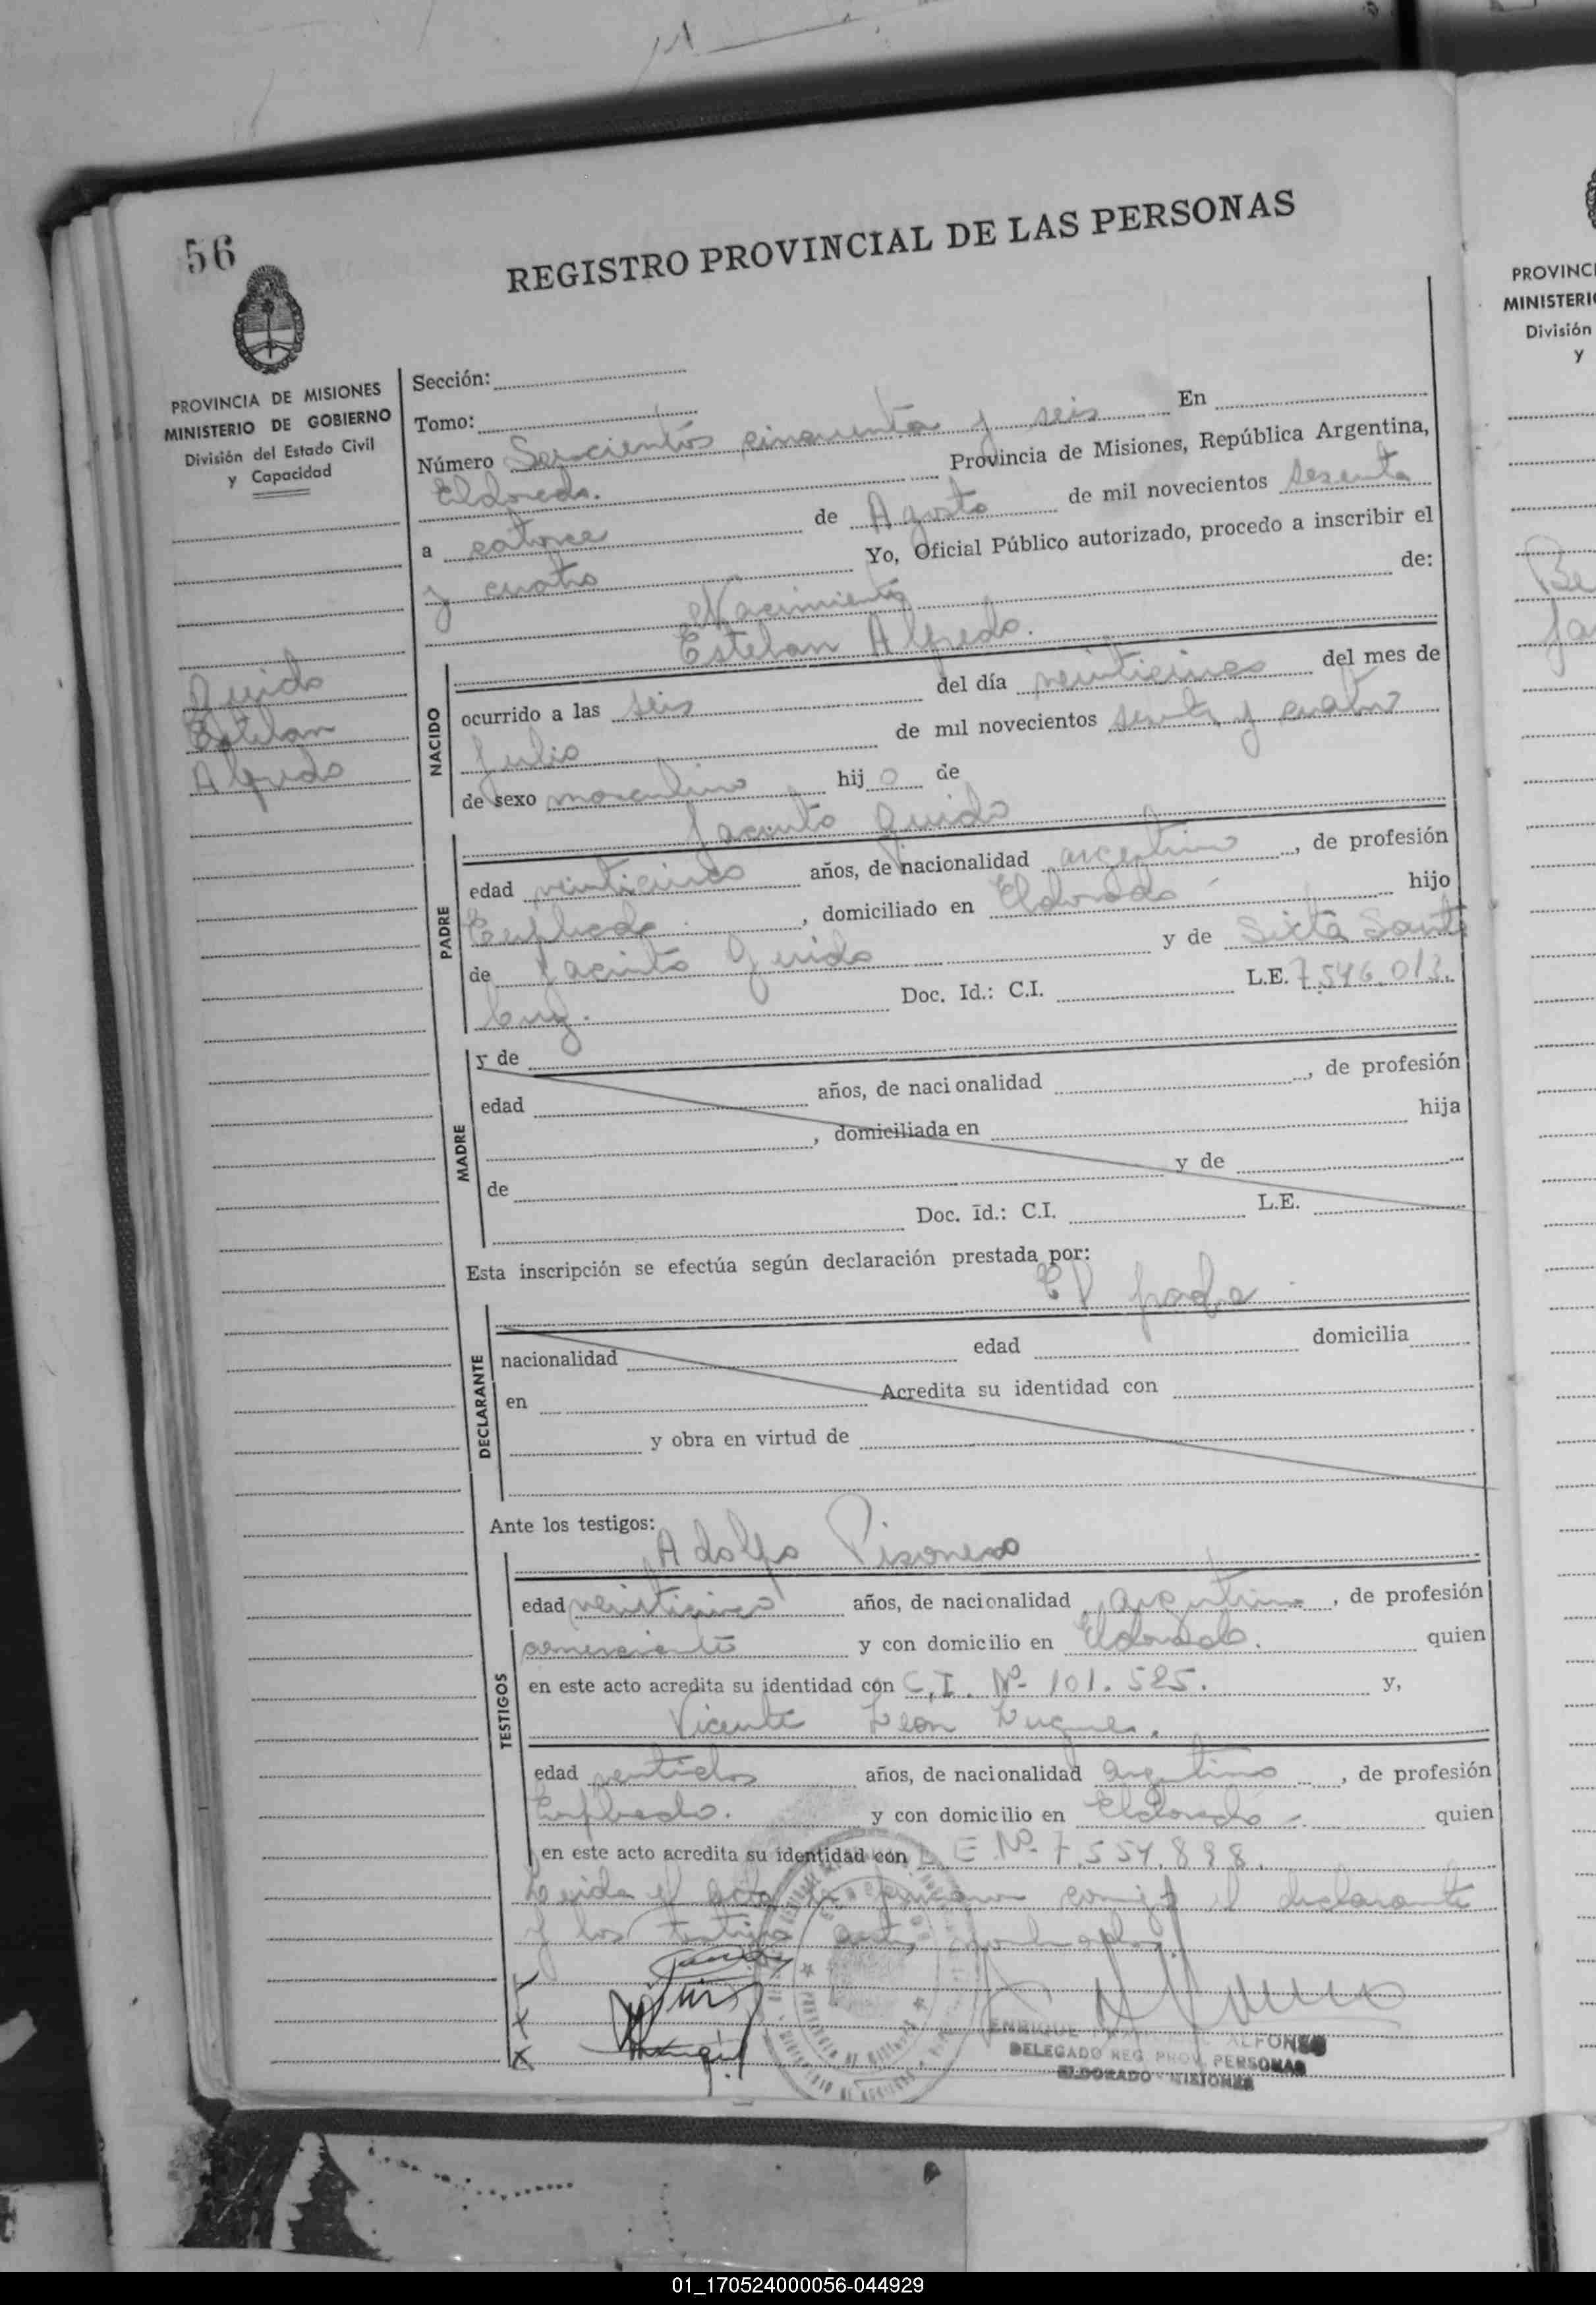 56
REGISTRO PROVINCIAL DE LAS PERSONAS
PROVINCIA DE MISIONES
MINISTERIO DE GOBIERNO
División del Estado Civil
y Capacidad
Guido
Esteban
Alfredo
Sección:
Tomo:
Número Seiscientos cincuenta y seis En
Eldorado. Provincia de Misiones, República Argentina,
a catorce de Agosto de mil novecientos sesenta
y cuatro Yo, Oficial Público autorizado, procedo a inscribir el
Nacimiento de:
Esteban Alfredo.
NACIDO
ocurrido a las seis del día veinticinco del mes de
Julio de mil novecientos sesenta y cuatro
de sexo masculino hijo de
Jacinto Guido
PADRE
edad veinticinco años, de nacionalidad argentino, de profesión
Empleado. , domiciliado en Eldorado hijo
de Jacinto Guido y de Sixta Santa
Cruz. Doc. Id.: C.I. L.E. 7.546.013.
MADRE
y de
edad años, de nacionalidad , de profesión
, domiciliada en hija
de y de
Doc. Id.: C.I. L.E.
Esta inscripción se efectúa según declaración prestada por:
El padre
DECLARANTE
nacionalidad edad domicilia
en Acredita su identidad con
y obra en virtud de
Ante los testigos:
Adolfo Pisonero
TESTIGOS
edad veinticinco años, de nacionalidad argentino, de profesión
comerciante y con domicilio en Eldorado. quien
en este acto acredita su identidad con C.I. Nº 101.525. y,
Vicente Leon Luque.
edad ventidos años, de nacionalidad argentino, de profesión
Empleado. y con domicilio en Eldorado. quien
en este acto acredita su identidad con L E Nº 7.554.898.
Leida el acta la firmaron conmigo el declarante
y los testigos antes nombrados
ENRIQUE ALFONSO
DELEGADO REG. PROV. PERSONAS
ELDORADO - MISIONES
PROVINCI
MINISTERIO
División
y
01_170524000056-044929